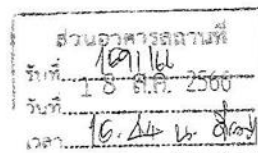 ส่วนอาคารสถานที่
รับที่
วันที่ 18 ส.ค. 2566
เวลา 16.44 น.